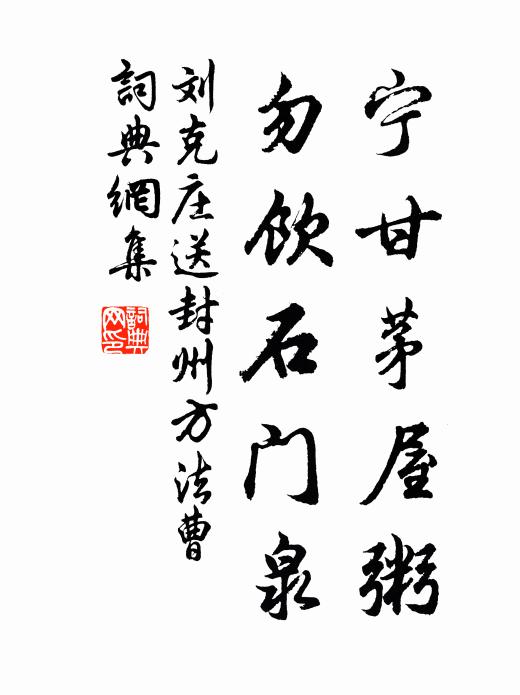 宁甘茅屋粥
勿饮石门泉
刘克庄送封州方法曹
词典網集
詞典网印